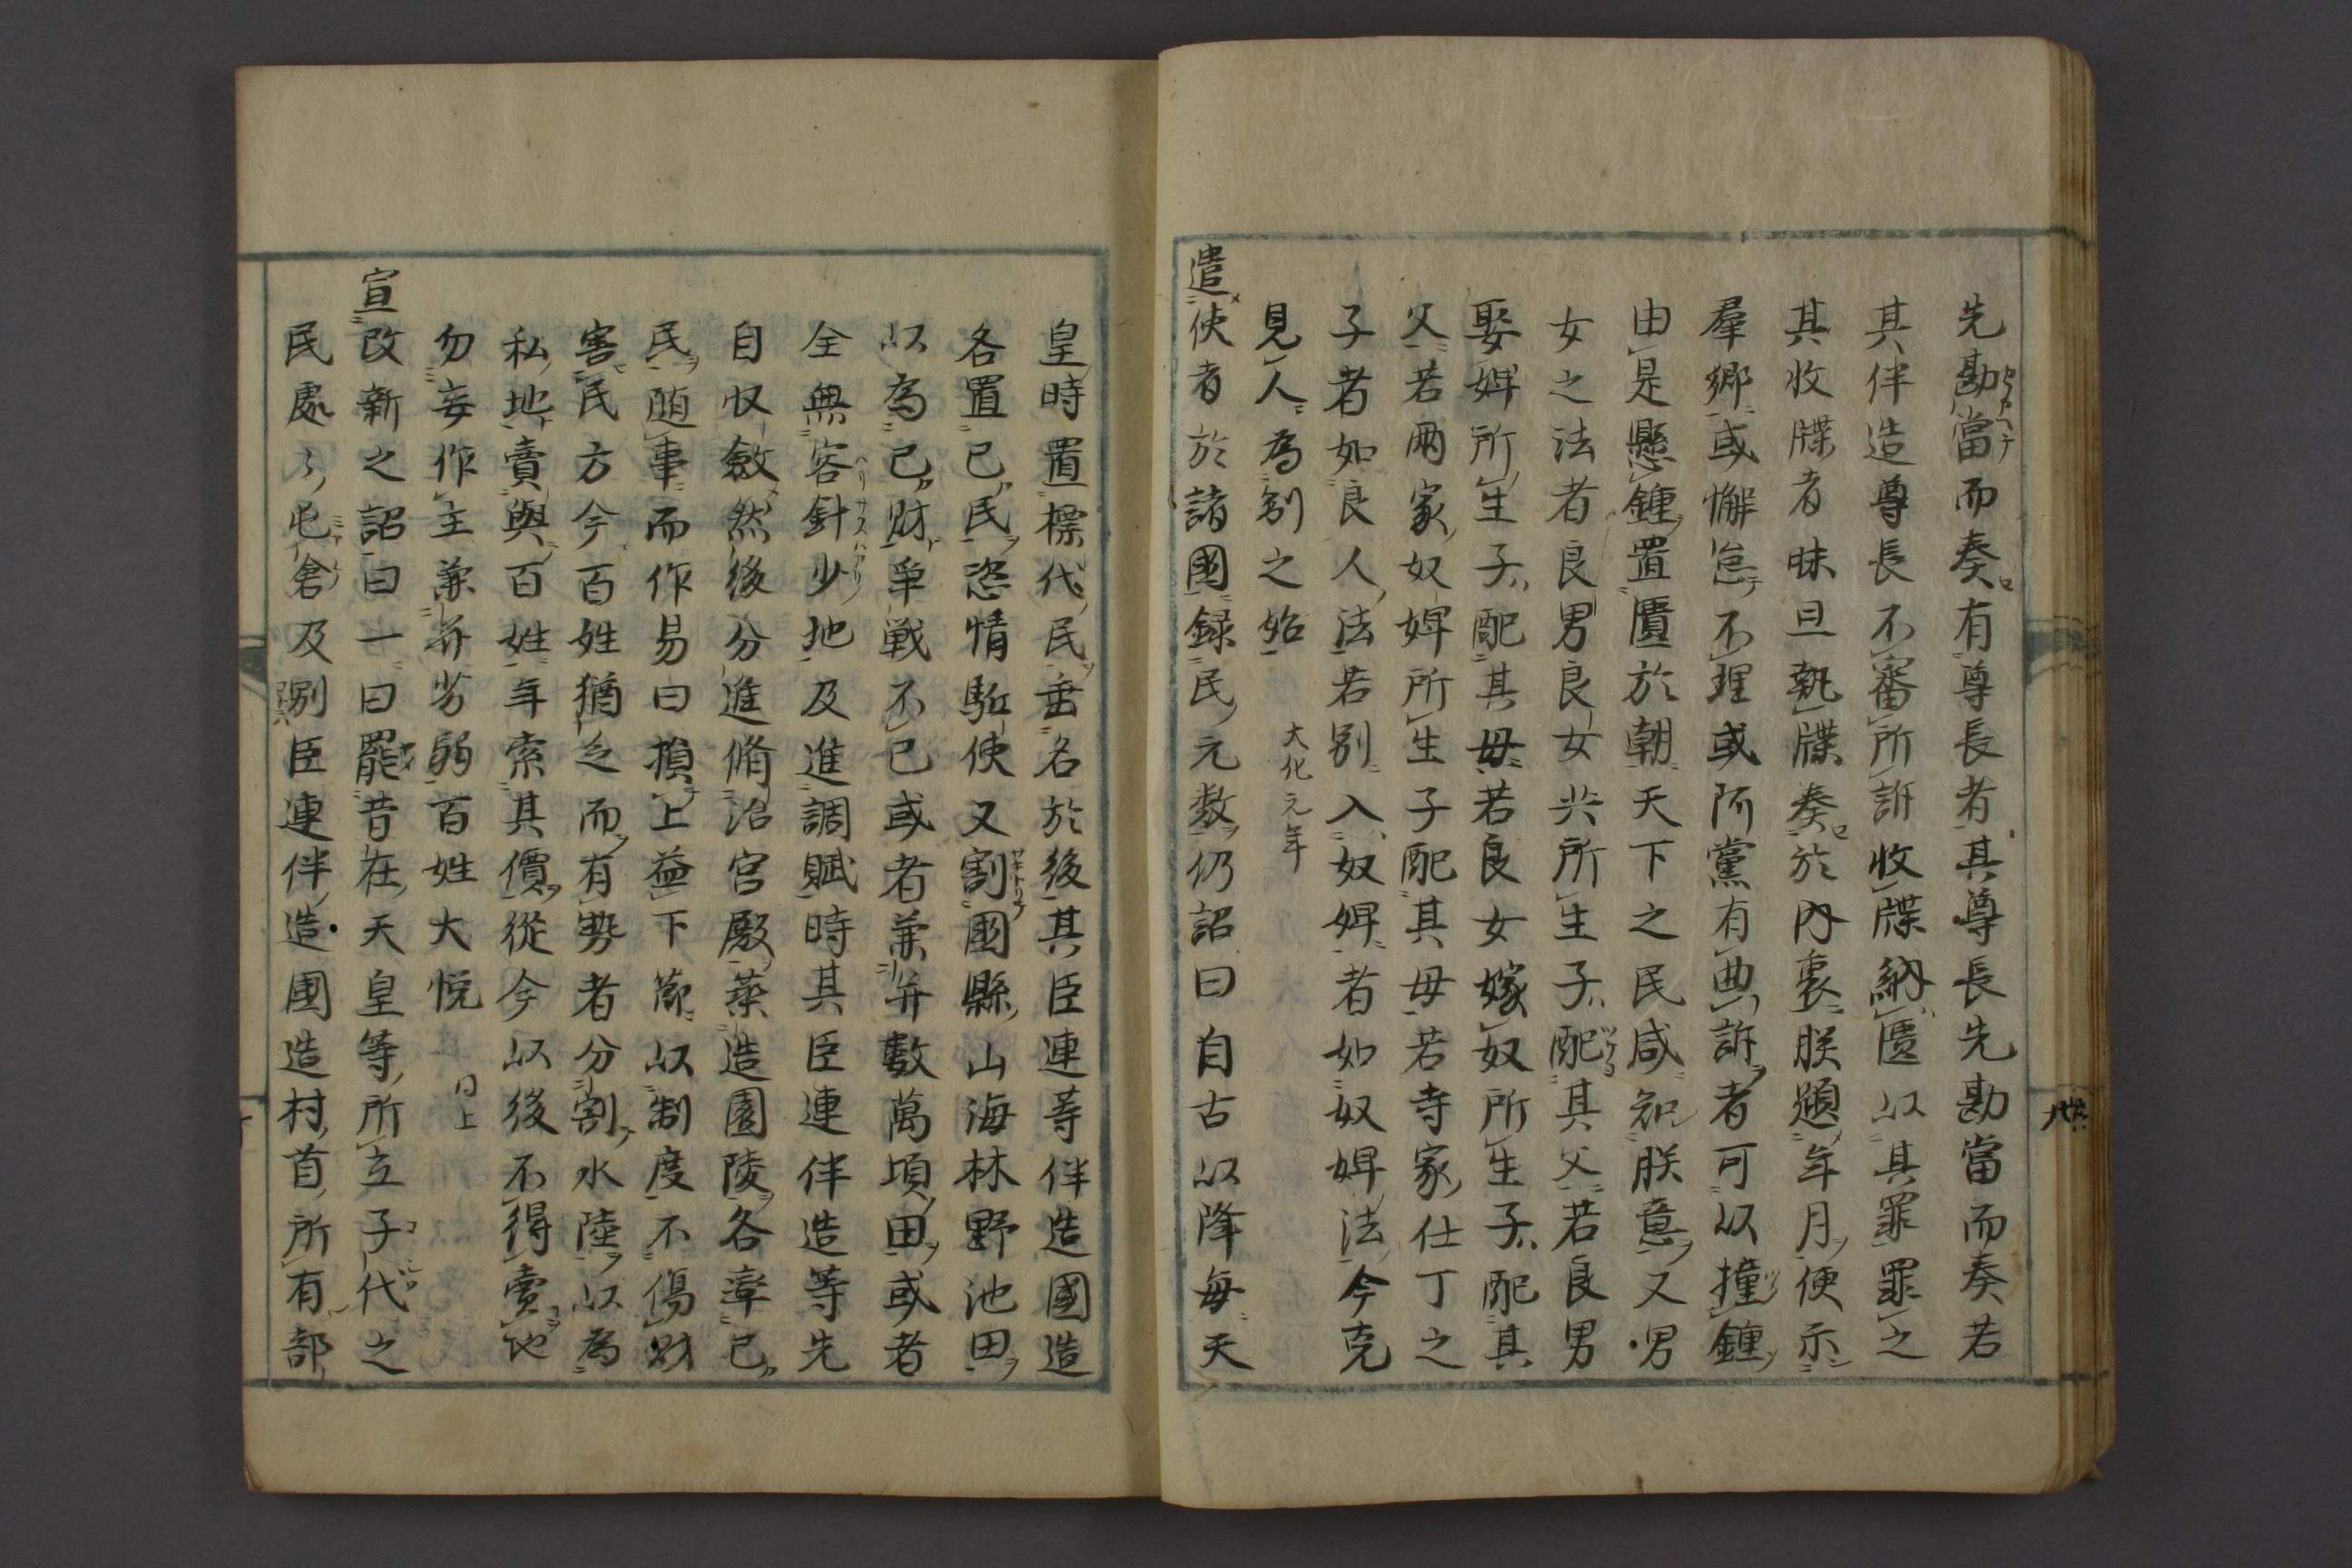 先勘當而奏有尊長者其尊長先勘當而奏若
其伴造尊長不審所訴收牒納匱以其罪罪之
其收牒者昧旦執牒奏於內裏朕題年月便示
羣卿或懈怠不理或阿黨有曲訴者可以撞鍾
由是懸鍾置匱於朝天下之民咸知朕意又男
女之法者良男良女共所生子配其父若良男
娶婢所生子配其母若良女嫁奴所生子配其
父若兩家奴婢所生子配其母若寺家仕丁之
子者如良人法若別入奴婢者如奴婢法今克
見人為制之始 大化元年
遣使者於諸國録民元数仍詔曰自古以降每天
皇時置標代民垂名於後其臣連等伴造國造
各置己民恣情駈使又割國縣山海林野池田
以為己財争戰不已或者兼并數萬頃田或者
全無容針少地及進調賦時其臣連伴造等先
自収斂然後分進脩治宮殿築造園陵各率己
民随事而作易曰損上益下節以制度不傷財
害民方今百姓猶乏而有勢者分割水陸以為
私地賣與百姓年索其價從今以後不得賣地
勿妄作主兼并劣弱百姓大悅 同上
宣改新之詔曰一曰罷昔在天皇等所立子代之
民處々屯倉及別臣連伴造國造村首所有部